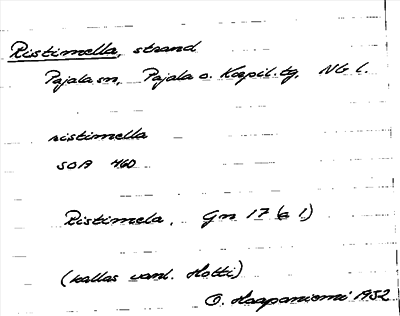 Ristimella, strand
Pajala sn, Pajala o. Korpil. tg, Nb l.
ristimella
SOA 460
Ristimela, Gn 17 (a 1)
(kallas vanl. Hotti)
O. Haapaniemi 1952